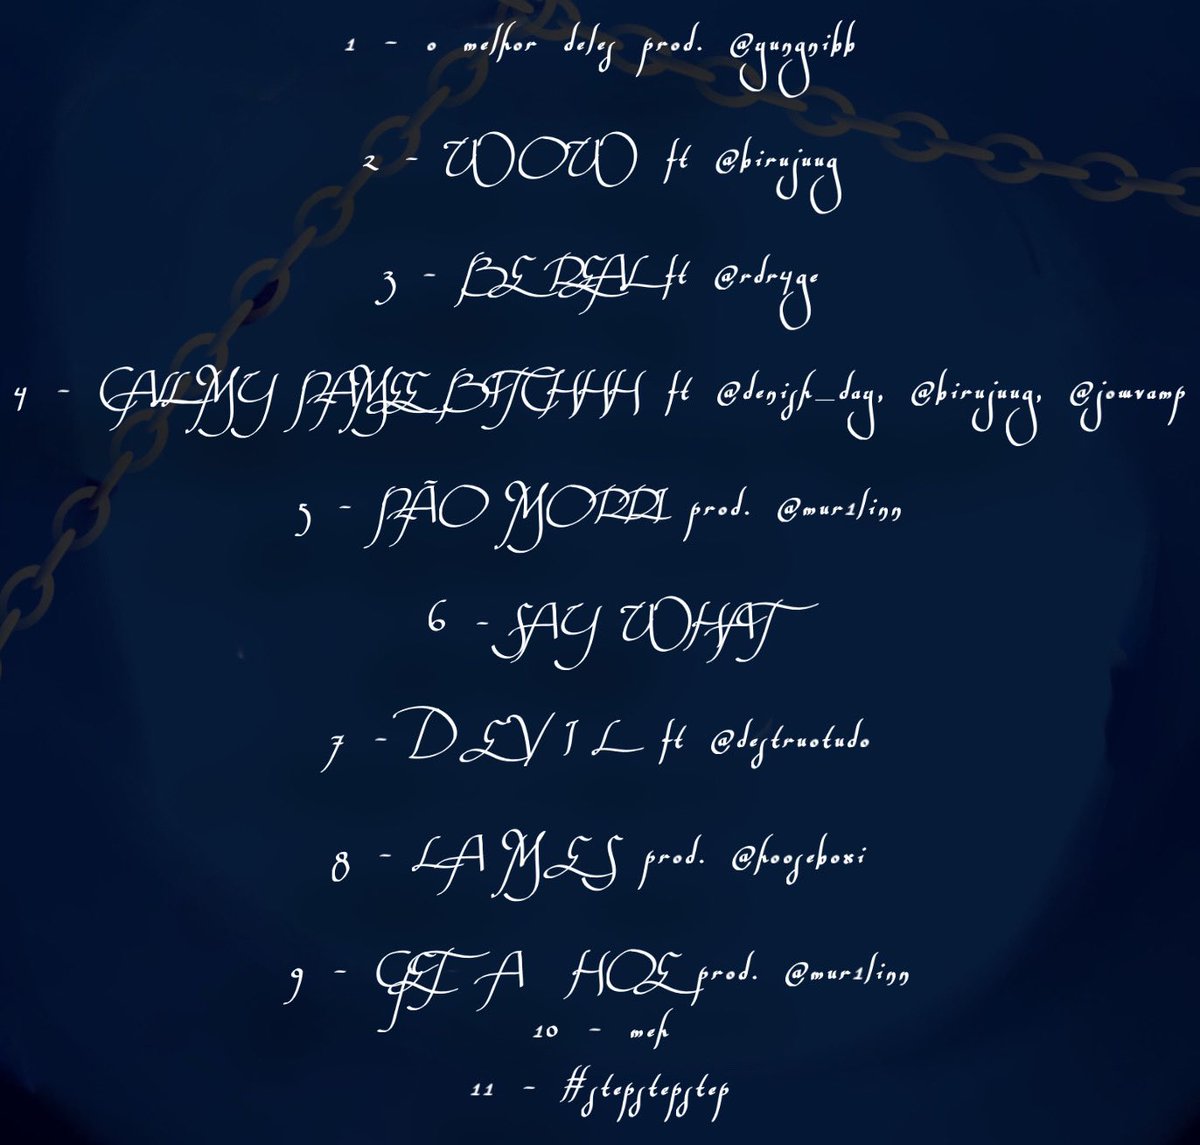 1 - o melhor deles prod. @yungnibb
2 - WOW ft @birujuug
3 - BE REAL ft @rdryge
4 - CALL MY NAMEE BITCHHH ft @denish_day, @birujuug, @jowvamp
5 - NÃO MORRI prod. @mur1linn
6 - SAY WHAT
7 - D E V I L ft @destruotudo
8 - LAMES prod. @hooseboxi
9 - GET A HOE prod. @mur1linn
10 - meh
11 - #stepstepstep